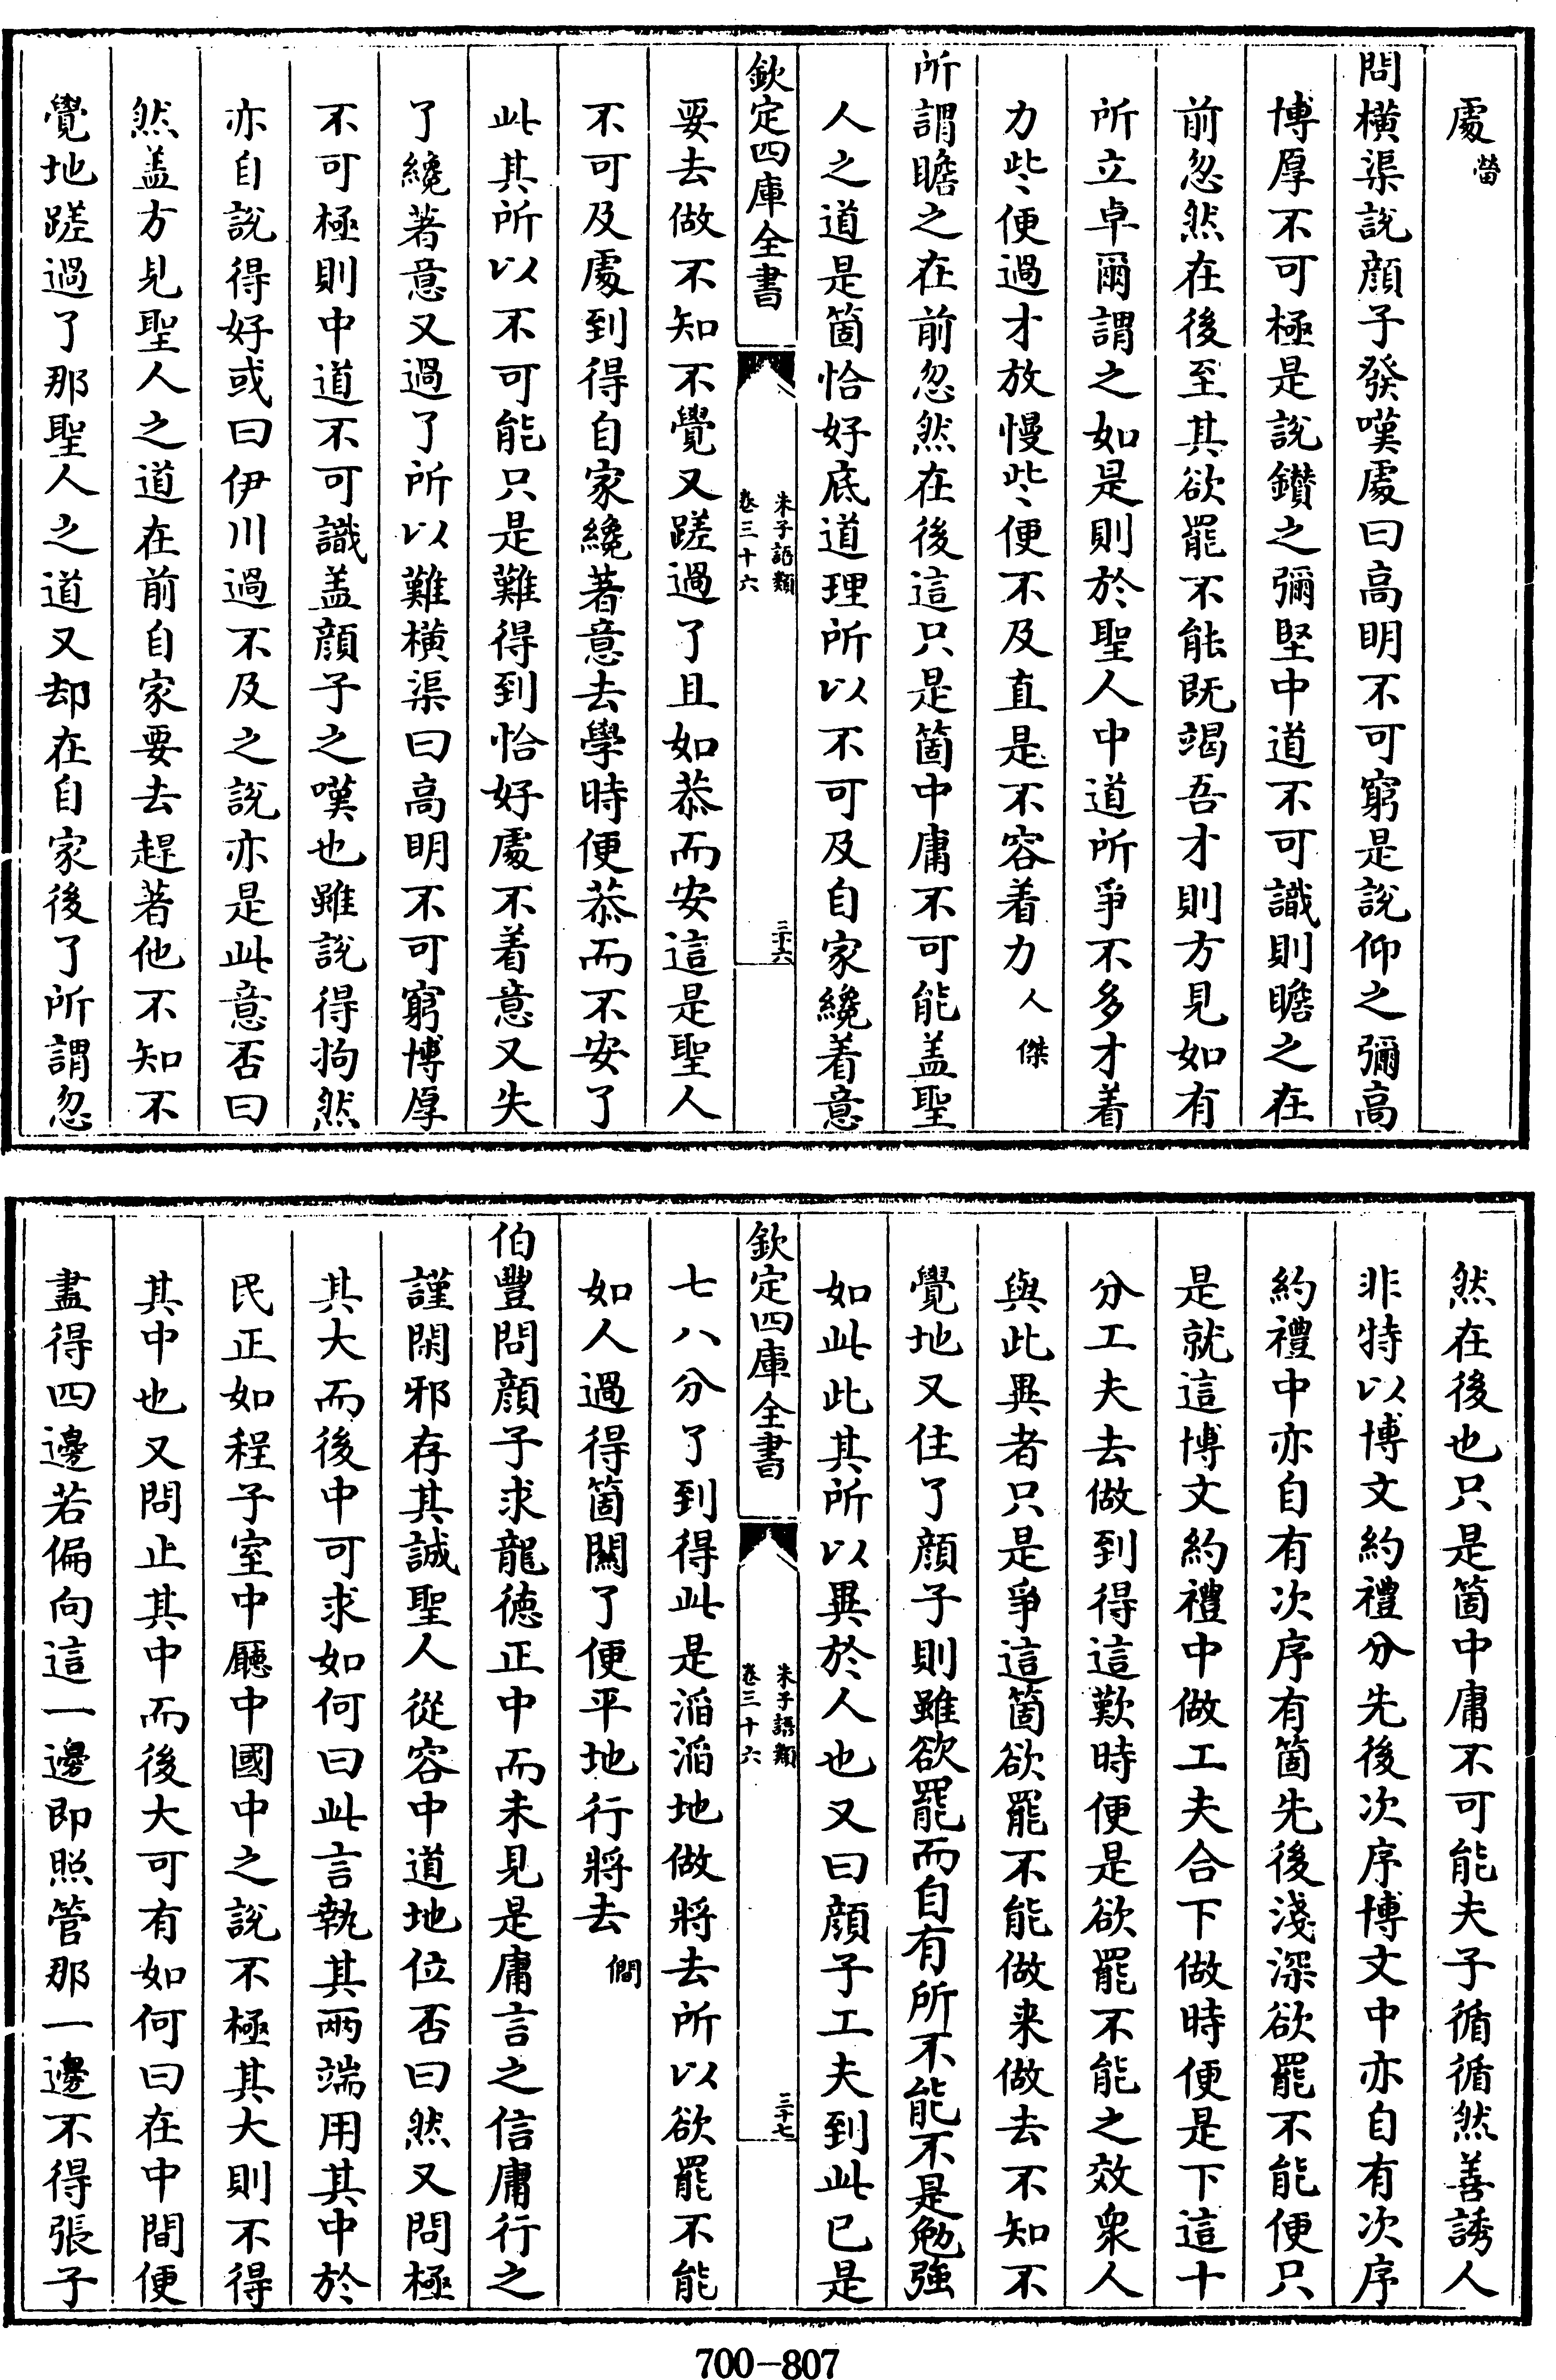 處㽦
問橫渠說顔子發嘆處曰高明不可窮是說仰之彌高
博厚不可極是說鑚之彌堅中道不可識則瞻之在
前忽然在後至其欲罷不能既竭吾才則方見如有
所立卓爾謂之如是則於聖人中道所爭不多才着
力些便過才放慢些便不及直是不容着力人傑
所謂瞻之在前忽然在後這只是箇中庸不可能盖聖
人之道是箇恰好底道理所以不可及自家纔着意
欽定四庫全書
朱子語類
卷三十六
三十六
要去做不知不覺又蹉過了且如恭而安這是聖人
不可及處到得自家纔著意去學時便恭而不安了
此其所以不可能只是難得到恰好處不着意又失
了纔著意又過了所以難橫渠曰高明不可窮博厚
不可極則中道不可識盖顔子之嘆也雖說得拘然
亦自說得好或曰伊川過不及之說亦是此意否曰
然盖方見聖人之道在前自家要去趕著他不知不
覺地蹉過了那聖人之道又却在自家後了所謂忽
然在後也只是箇中庸不可能夫子循循然善誘人
非特以博文約禮分先後次序博文中亦自有次序
約禮中亦自有次序有箇先後淺深欲罷不能便只
是就這博文約禮中做工夫合下做時便是下這十
分工夫去做到得這歎時便是欲罷不能之效衆人
與此異者只是爭這箇欲罷不能做来做去不知不
覺地又住了顔子則雖欲罷而自有所不能不是勉強
如此此其所以異於人也又曰顔子工夫到此已是
欽定四庫全書
朱子語類
卷三十六
三十七
七八分了到得此是滔滔地做將去所以欲罷不能
如人過得箇關了便平地行將去僩
伯豐問顔子求龍德正中而未見是庸言之信庸行之
謹閑邪存其誠聖人從容中道地位否曰然又問極
其大而後中可求如何曰此言執其兩端用其中於
民正如程子室中廳中國中之說不極其大則不得
其中也又問止其中而後大可有如何曰在中間便
盡得四邊若偏向這一邊即照管那一邊不得張子
700-807